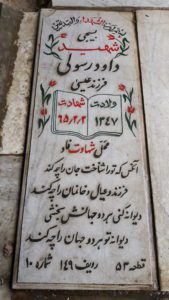 بسیجی
شهید
داود رسولی
فرزند عیسی
ولادت
شهادت
۱۳۴۷
۶۵/۲/۲
محل شهادت فاو
آنکس که تو را شناخت جان را چه کند
فرزند و عیال و خانمان را چه کند
دیوانه کنی هر دو جهانش بخشی
دیوانه تو هر دو جهان را چه کند
قطعه ۵۳ ردیف ۱۴۹ شماره ۱۰